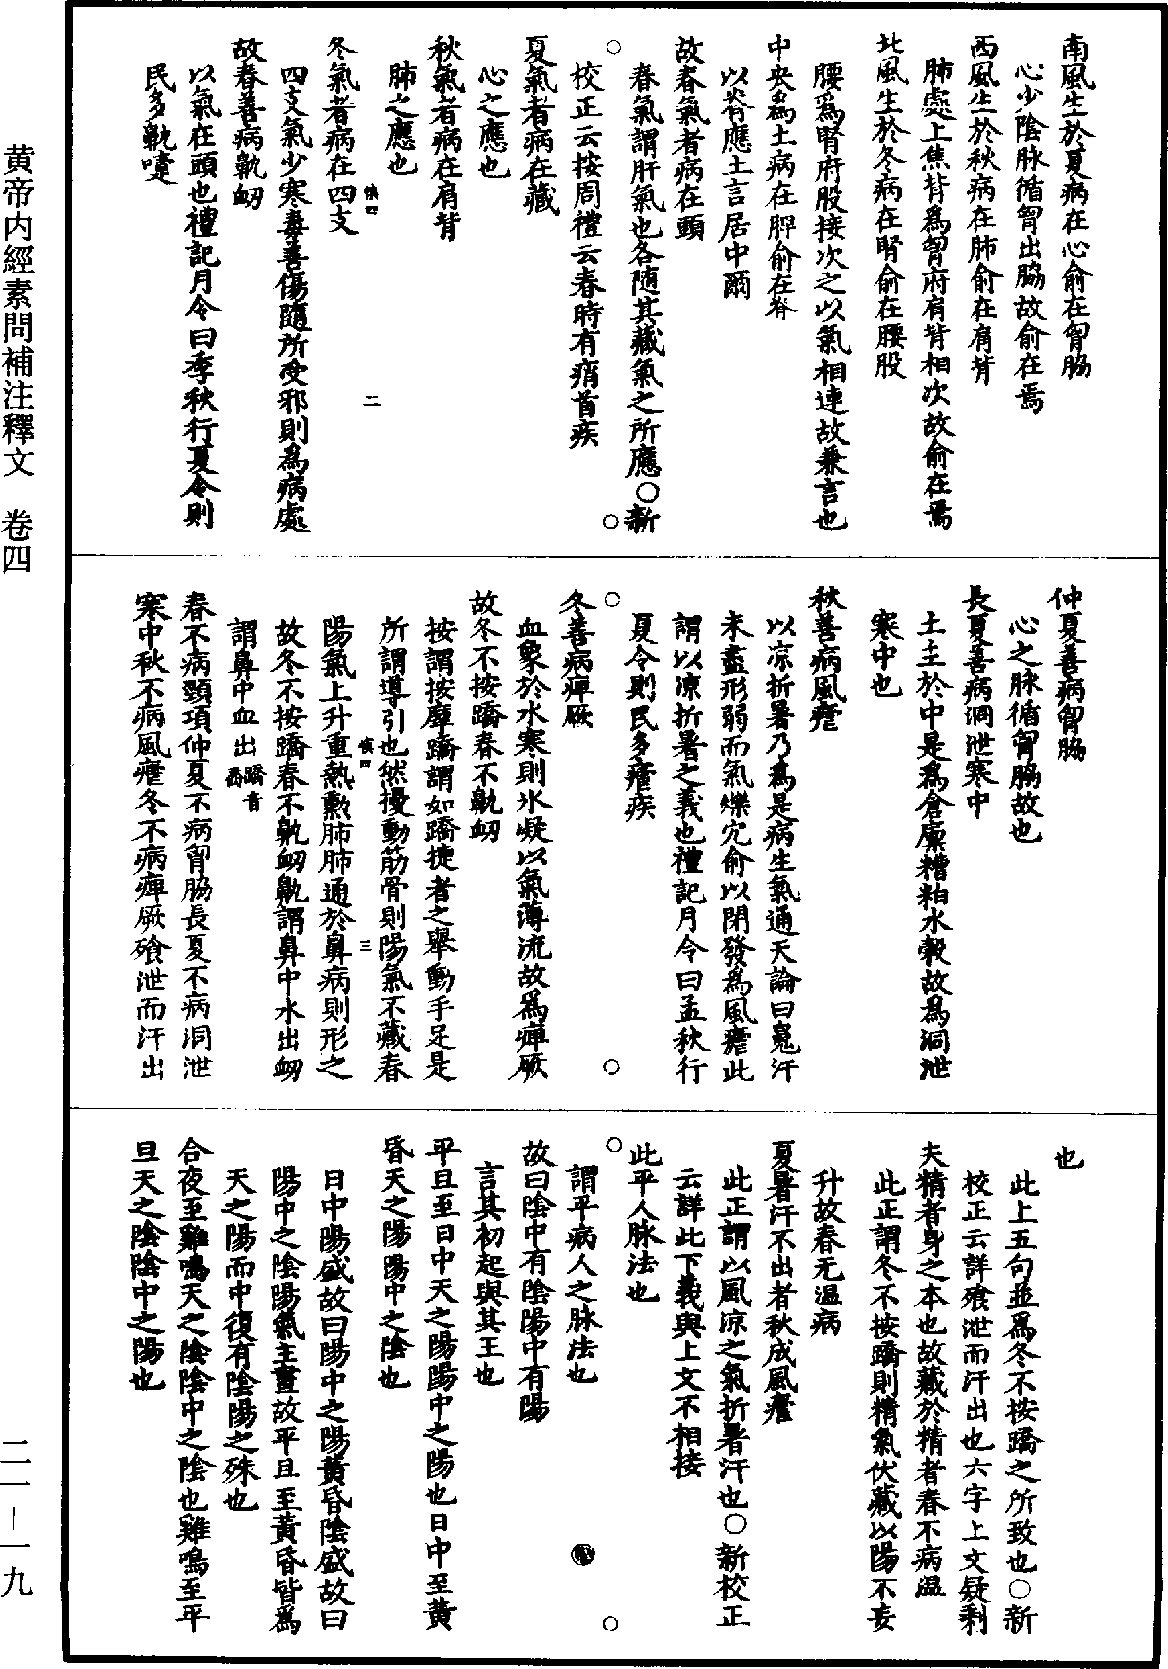 南風生於夏病在心俞在胷脇
心少陰脉循胷出脇故俞在焉
西風生於秋病在肺俞在肩背
肺處上焦背為胷府肩背相次故俞在焉
北風生於冬病在腎俞在腰股
腰為腎府股接次之以氣相連故兼言也
中央為土病在脾俞在脊
以脊應土言居中爾
故春氣者病在頭
春氣謂肝氣也各随其藏氣之所應○新
校正云按周禮云春時有痟首疾
夏氣者病在藏
心之應也
秋氣者病在肩背
肺之應也
慎四 二
冬氣者病在四支
四支氣少寒毒善傷隨所受邪則為病處
故春善病鼽衂
以氣在頭也禮記月令曰季秋行夏令則
民多鼽嚏
仲夏善病胷脇
心之脉循胷脇故也
長夏善病洞泄寒中
土主於中是為倉廪糟粕水穀故為洞泄
寒中也
秋善病風瘧
以凉折暑乃為是病生氣通天論曰䰟汗
未盡形弱而氣爍穴俞以閉發為風瘧此
謂以凉折暑之義也禮記月令曰孟秋行
夏令則民多瘧疾
冬善病痺厥
血象於水寒則氷凝以氣薄流故為痺厥
故冬不按蹻春不鼽衂
按謂按摩蹻謂如蹻捷者之舉動手足是
所謂導引也然擾動筋骨則陽氣不藏春
慎四 三
陽氣上升重熱熏肺肺通於鼻病則形之
故冬不按蹻春不鼽衂鼽謂鼻中水出衂
謂鼻中血出蹻音喬
春不病頸項仲夏不病胷脇長夏不病洞泄
寒中秋不病風瘧冬不病痺厥飱泄而汗出
也
此上五句並為冬不按蹻之所致也○新
校正云詳飱泄而汗出也六字上文疑剩
夫精者身之本也故藏於精者春不病温
此正謂冬不按蹻則精氣伏藏以陽不妄
升故春无温病
夏暑汗不出者秋成風瘧
此正謂以風凉之氣折暑汗也○新校正
云詳此下義與上文不相接
此平人脉法也
謂平病人之脉法也
故曰陰中有陰陽中有陽
言其初起與其王也
平旦至日中天之陽陽中之陽也日中至黄
昏天之陽陽中之陰也
日中陽盛故曰陽中之陽黄昏陰盛故曰
陽中之陰陽氣主晝故平旦至黄昏皆為
天之陽而中復有陰陽之殊也
合夜至雞鳴天之陰陰中之陰也雞鳴至平
旦天之陰陰中之陽也
黄帝内經素問補注釋文 卷四
二一－一九